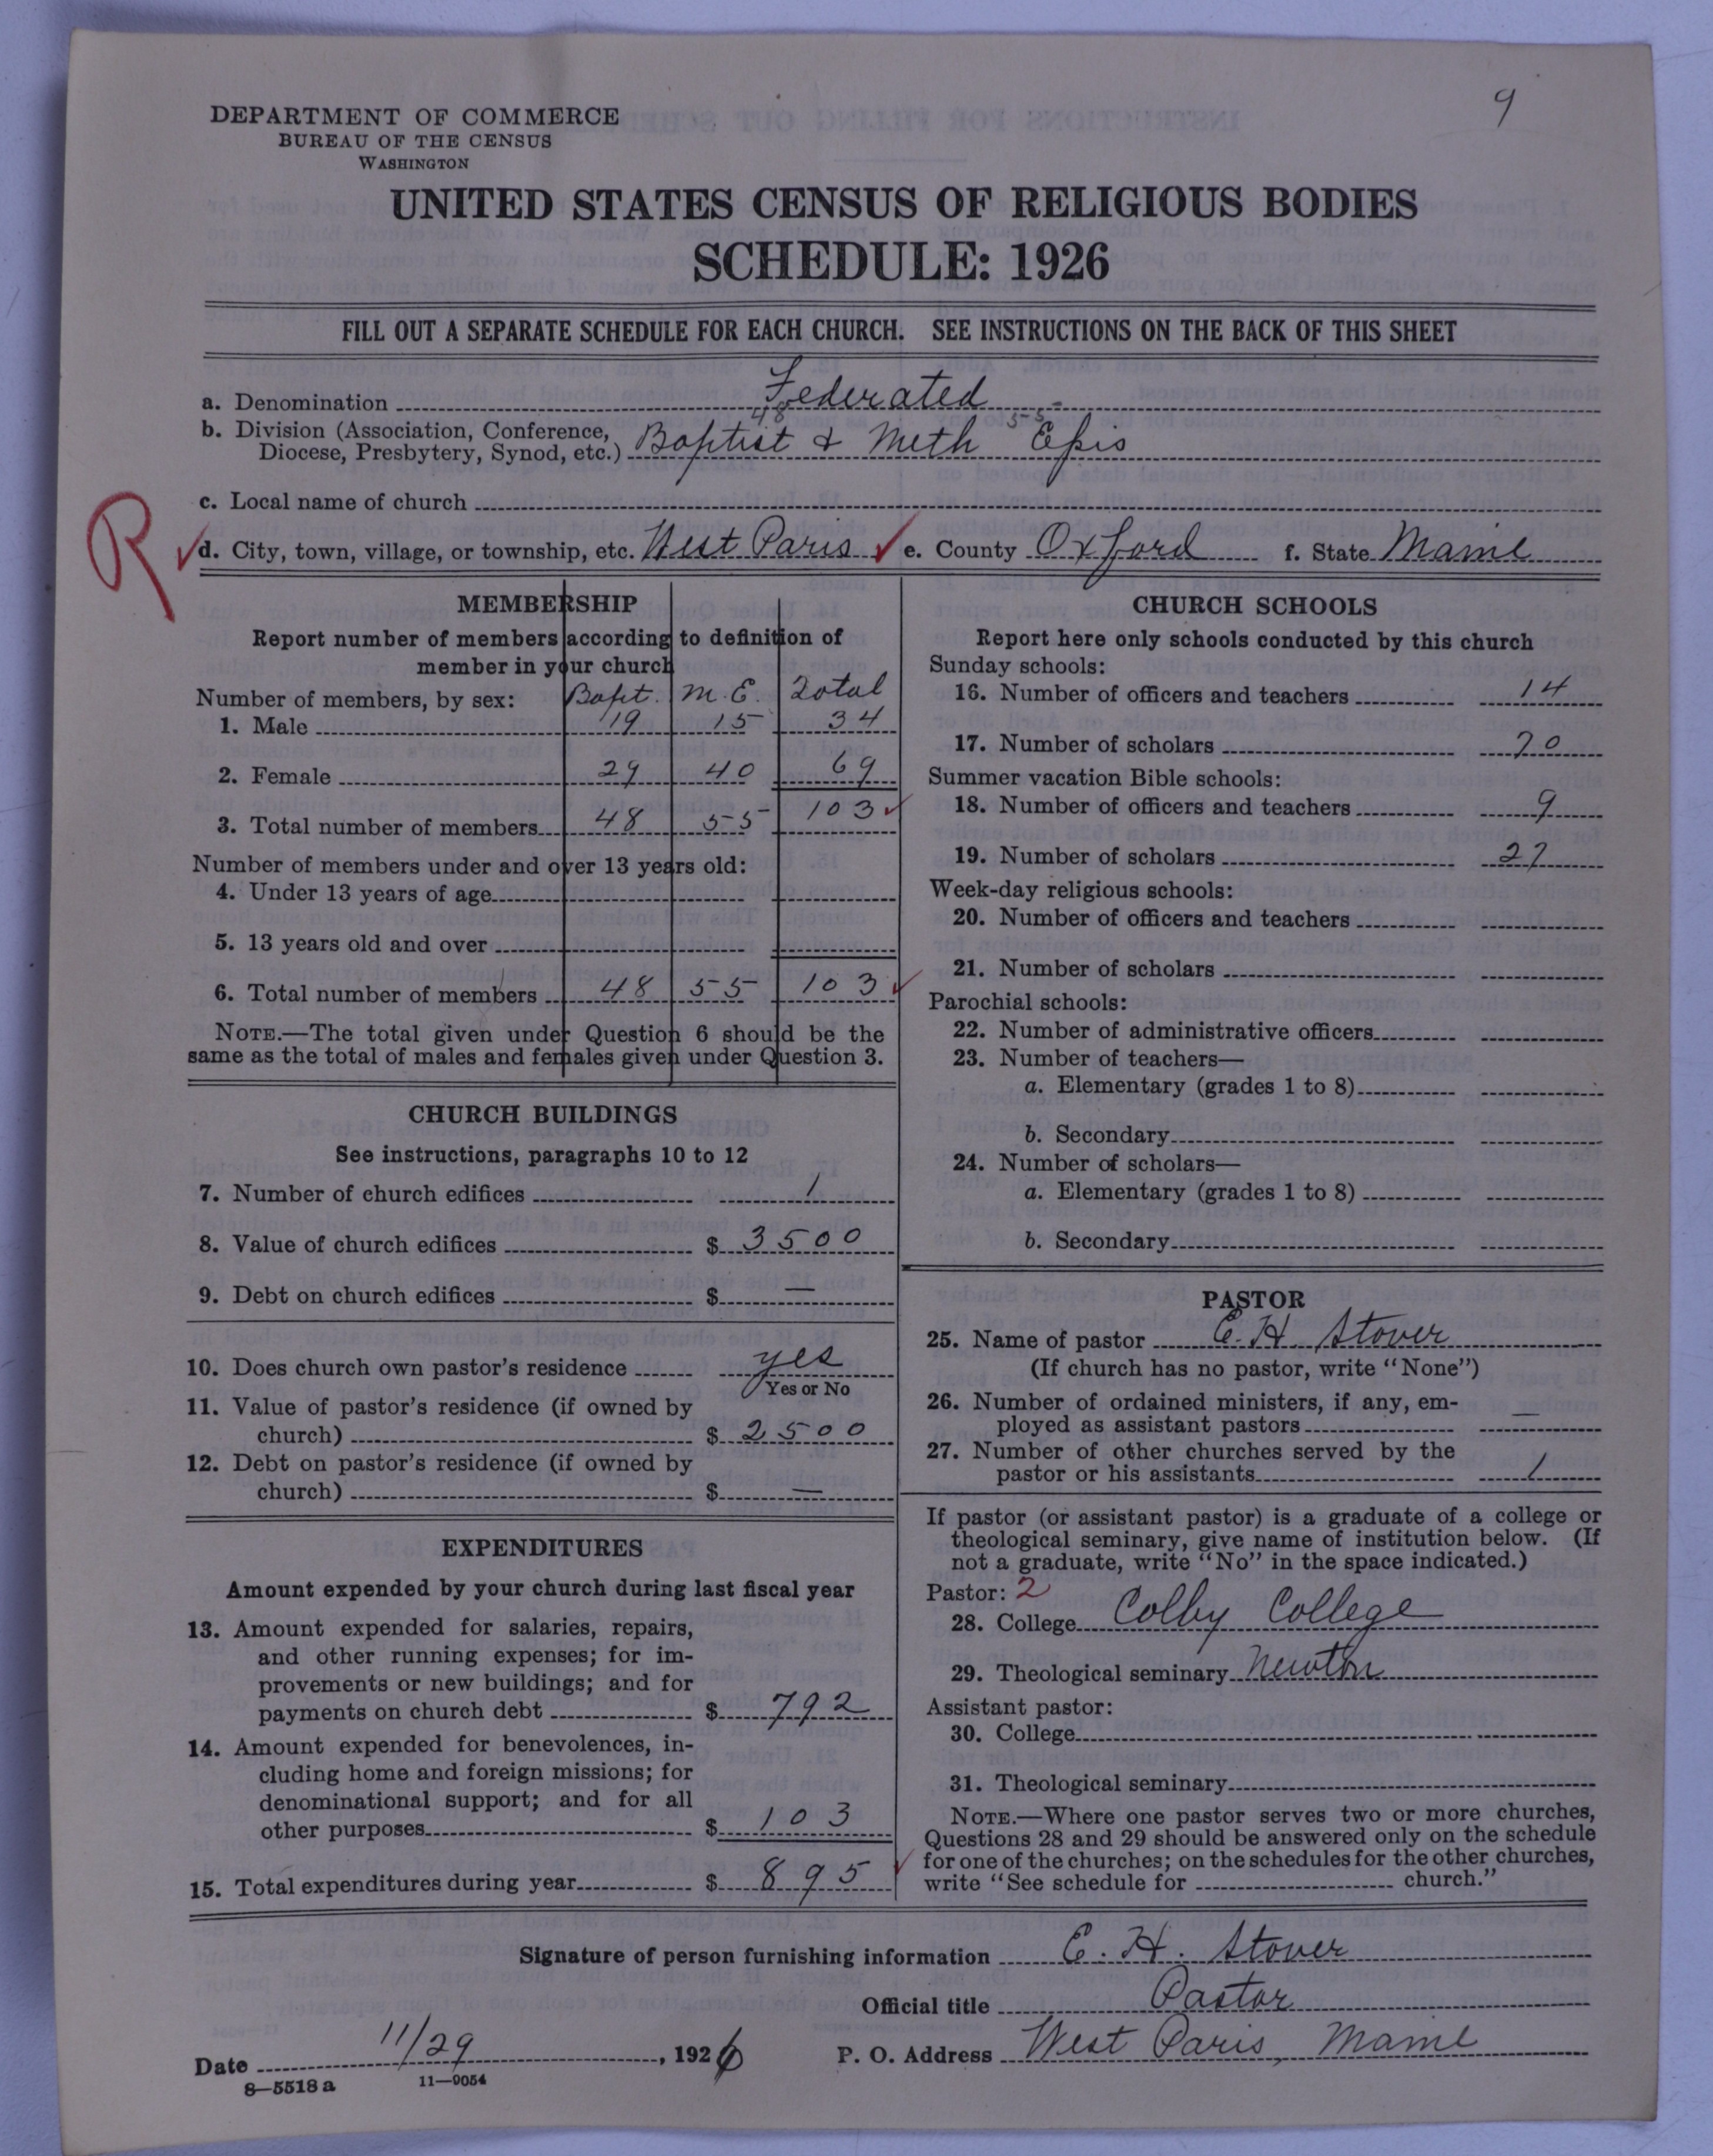 9
DEPARTMENT OF COMMERCE
BUREAU OF THE CENSUS
WASHINGTON
UNITED STATES CENSUS OF RELIGIOUS BODIES
SCHEDULE: 1926
FILL OUT A SEPARATE SCHEDULE FOR EACH CHURCH. SEE INSTRUCTIONS ON THE BACK OF THIS SHEET
a. Denomination Federated
48 55
b. Division (Association, Conference, Diocese, Presbytery, Synod, etc.) Baptist & Meth Epis
c. Local name of church
R
d. City, town, village, or township, etc. West Paris e. County Oxford f. State Maine
MEMBERSHIP
Report number of members according to definition of
member in your church
Number of members, by sex: Bapt. M.E. Total
1. Male 19 15 34
2. Female 29 40 69
3. Total number of members 48 55 103
Number of members under and over 13 years old:
4. Under 13 years of age
5. 13 years old and over
6. Total number of members 48 55 103
NOTE.—The total given under Question 6 should be the
same as the total of males and females given under Question 3.
CHURCH BUILDINGS
See instructions, paragraphs 10 to 12
7. Number of church edifices 1
8. Value of church edifices $ 3500
9. Debt on church edifices $ —
10. Does church own pastor's residence yes
Yes or No
11. Value of pastor's residence (if owned by
church) $ 2500
12. Debt on pastor's residence (if owned by
church) $ —
EXPENDITURES
Amount expended by your church during last fiscal year
13. Amount expended for salaries, repairs,
and other running expenses; for im-
provements or new buildings; and for
payments on church debt $ 792
14. Amount expended for benevolences, in-
cluding home and foreign missions; for
denominational support; and for all
other purposes $ 103
15. Total expenditures during year $ 895
CHURCH SCHOOLS
Report here only schools conducted by this church
Sunday schools:
16. Number of officers and teachers 14
17. Number of scholars 70
Summer vacation Bible schools:
18. Number of officers and teachers 9
19. Number of scholars 27
Week-day religious schools:
20. Number of officers and teachers
21. Number of scholars
Parochial schools:
22. Number of administrative officers
23. Number of teachers—
a. Elementary (grades 1 to 8)
b. Secondary
24. Number of scholars—
a. Elementary (grades 1 to 8)
b. Secondary
PASTOR
25. Name of pastor E. H. Stover
(If church has no pastor, write "None")
26. Number of ordained ministers, if any, em-
ployed as assistant pastors —
27. Number of other churches served by the
pastor or his assistants 1
If pastor (or assistant pastor) is a graduate of a college or
theological seminary, give name of institution below. (If
not a graduate, write "No" in the space indicated.)
Pastor: 2
28. College Colby College
29. Theological seminary Newton
Assistant pastor:
30. College
31. Theological seminary
NOTE.—Where one pastor serves two or more churches,
Questions 28 and 29 should be answered only on the schedule
for one of the churches; on the schedules for the other churches,
write "See schedule for church."
Signature of person furnishing information E. H. Stover
Official title Pastor
Date 11/29, 1926 P. O. Address West Paris, Maine
8—5518 a 11—9054